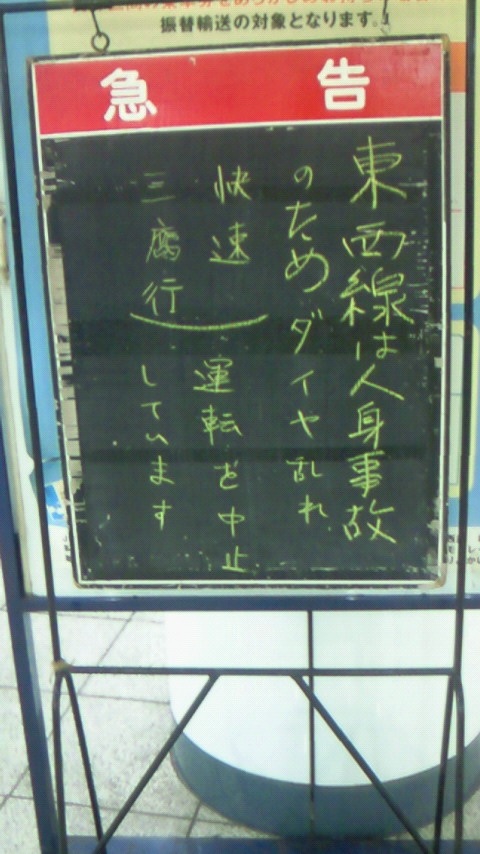 振替輸送の対象となります。
急告
東西線は人身事故
のためダイヤ乱れ
快速
三腐行
運転を中止
しています